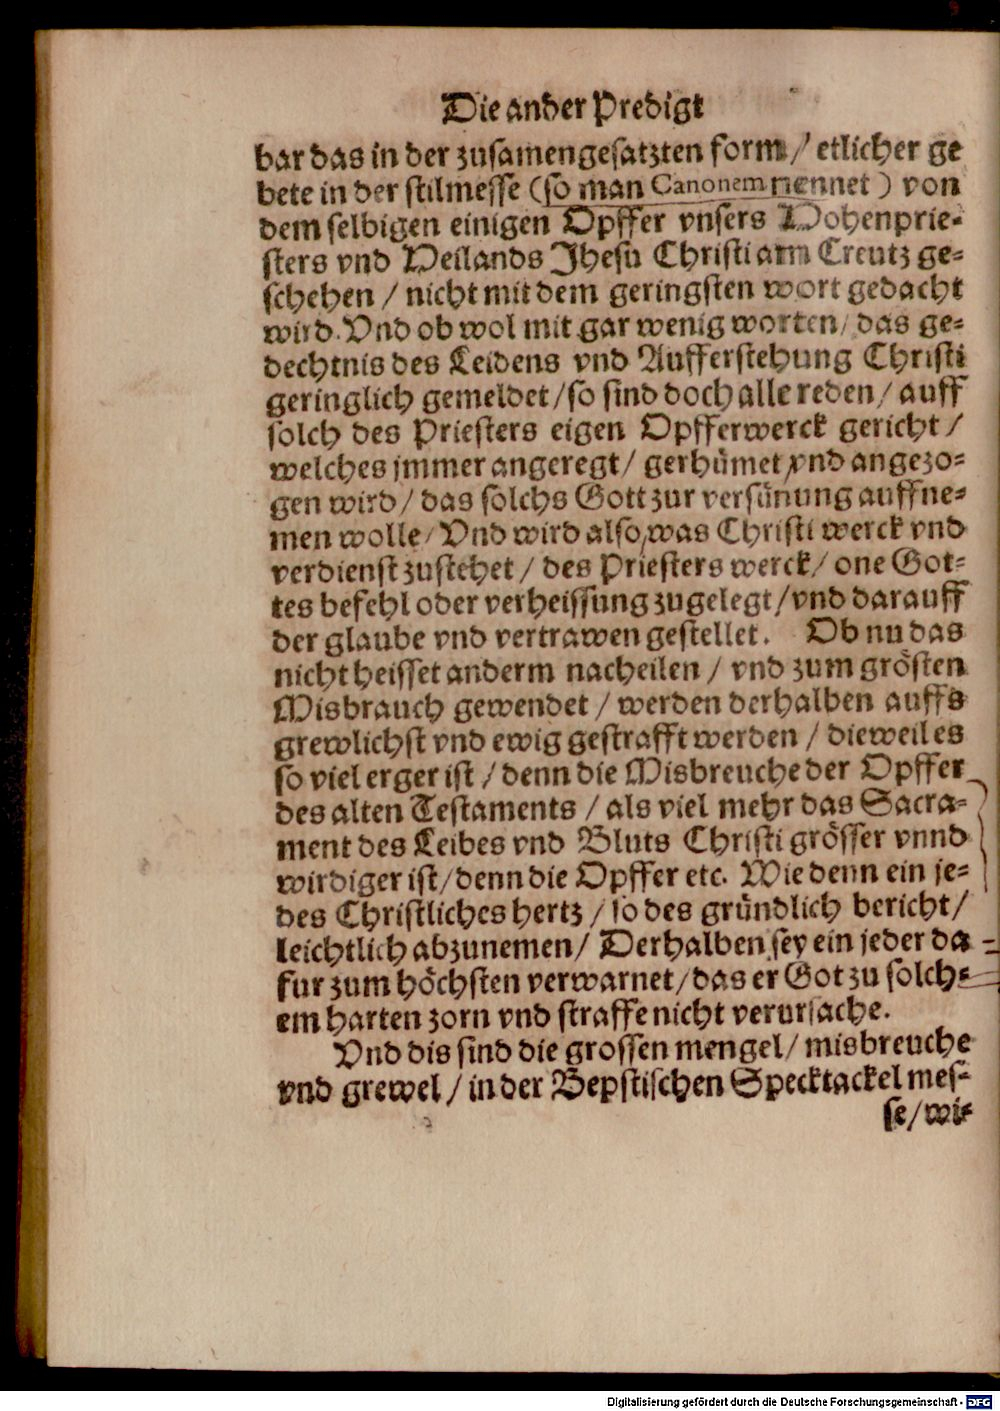 Die ander Predigt
bar das in der zusamengesatzten form / etlicher ge
bete in der stilmesse (so man Canonem nennet) von
dem selbigen einigen Opffer vnsers Hohenprie-
sters vnd Heilands Jhesu Christi am Creutz ge-
schehen / nicht mit dem geringsten wort gedacht
wird. Vnd ob wol mit gar wenig worten / das ge-
dechtnis des Leidens vnd Aufferstehung Christi
geringlich gemeldet / so sind doch alle reden / auff
solch des Priesters eigen Opfferwerck gericht /
welches jmmer angeregt / gerhümet vnd angezo-
gen wird / das solchs Gott zur versünung auffne-
men wolle / Vnd wird also was Christi werck vnd
verdienst zustehet / des Priesters werck / one Got-
tes befehl oder verheissung zugelegt / vnd darauff
der glaube vnd vertrawen gestellet. Ob nu das
nicht heisset anderm nacheilen / vnd zum grösten
Misbrauch gewendet / werden derhalben auffs
grewlichst vnd ewig gestrafft werden / dieweil es
so viel erger ist / denn die Misbreuche der Opffer
des alten Testaments / als viel mehr das Sacra-
ment des Leibes vnd Bluts Christi grösser vnnd
wirdiger ist / denn die Opffer etc. Wie denn ein je-
des Christliches hertz / so des gründlich bericht /
leichtlich abzunemen / Derhalben sey ein jeder da
fur zum höchsten verwarnet / das er Got zu solch-
em harten zorn vnd straffe nicht verursache.
Vnd dis sind die grossen mengel / misbreuche
vnd grewel / in der Bepstischen Specktackel mes-
se / wi-
Digitalisierung gefördert durch die Deutsche Forschungsgemeinschaft - DFG